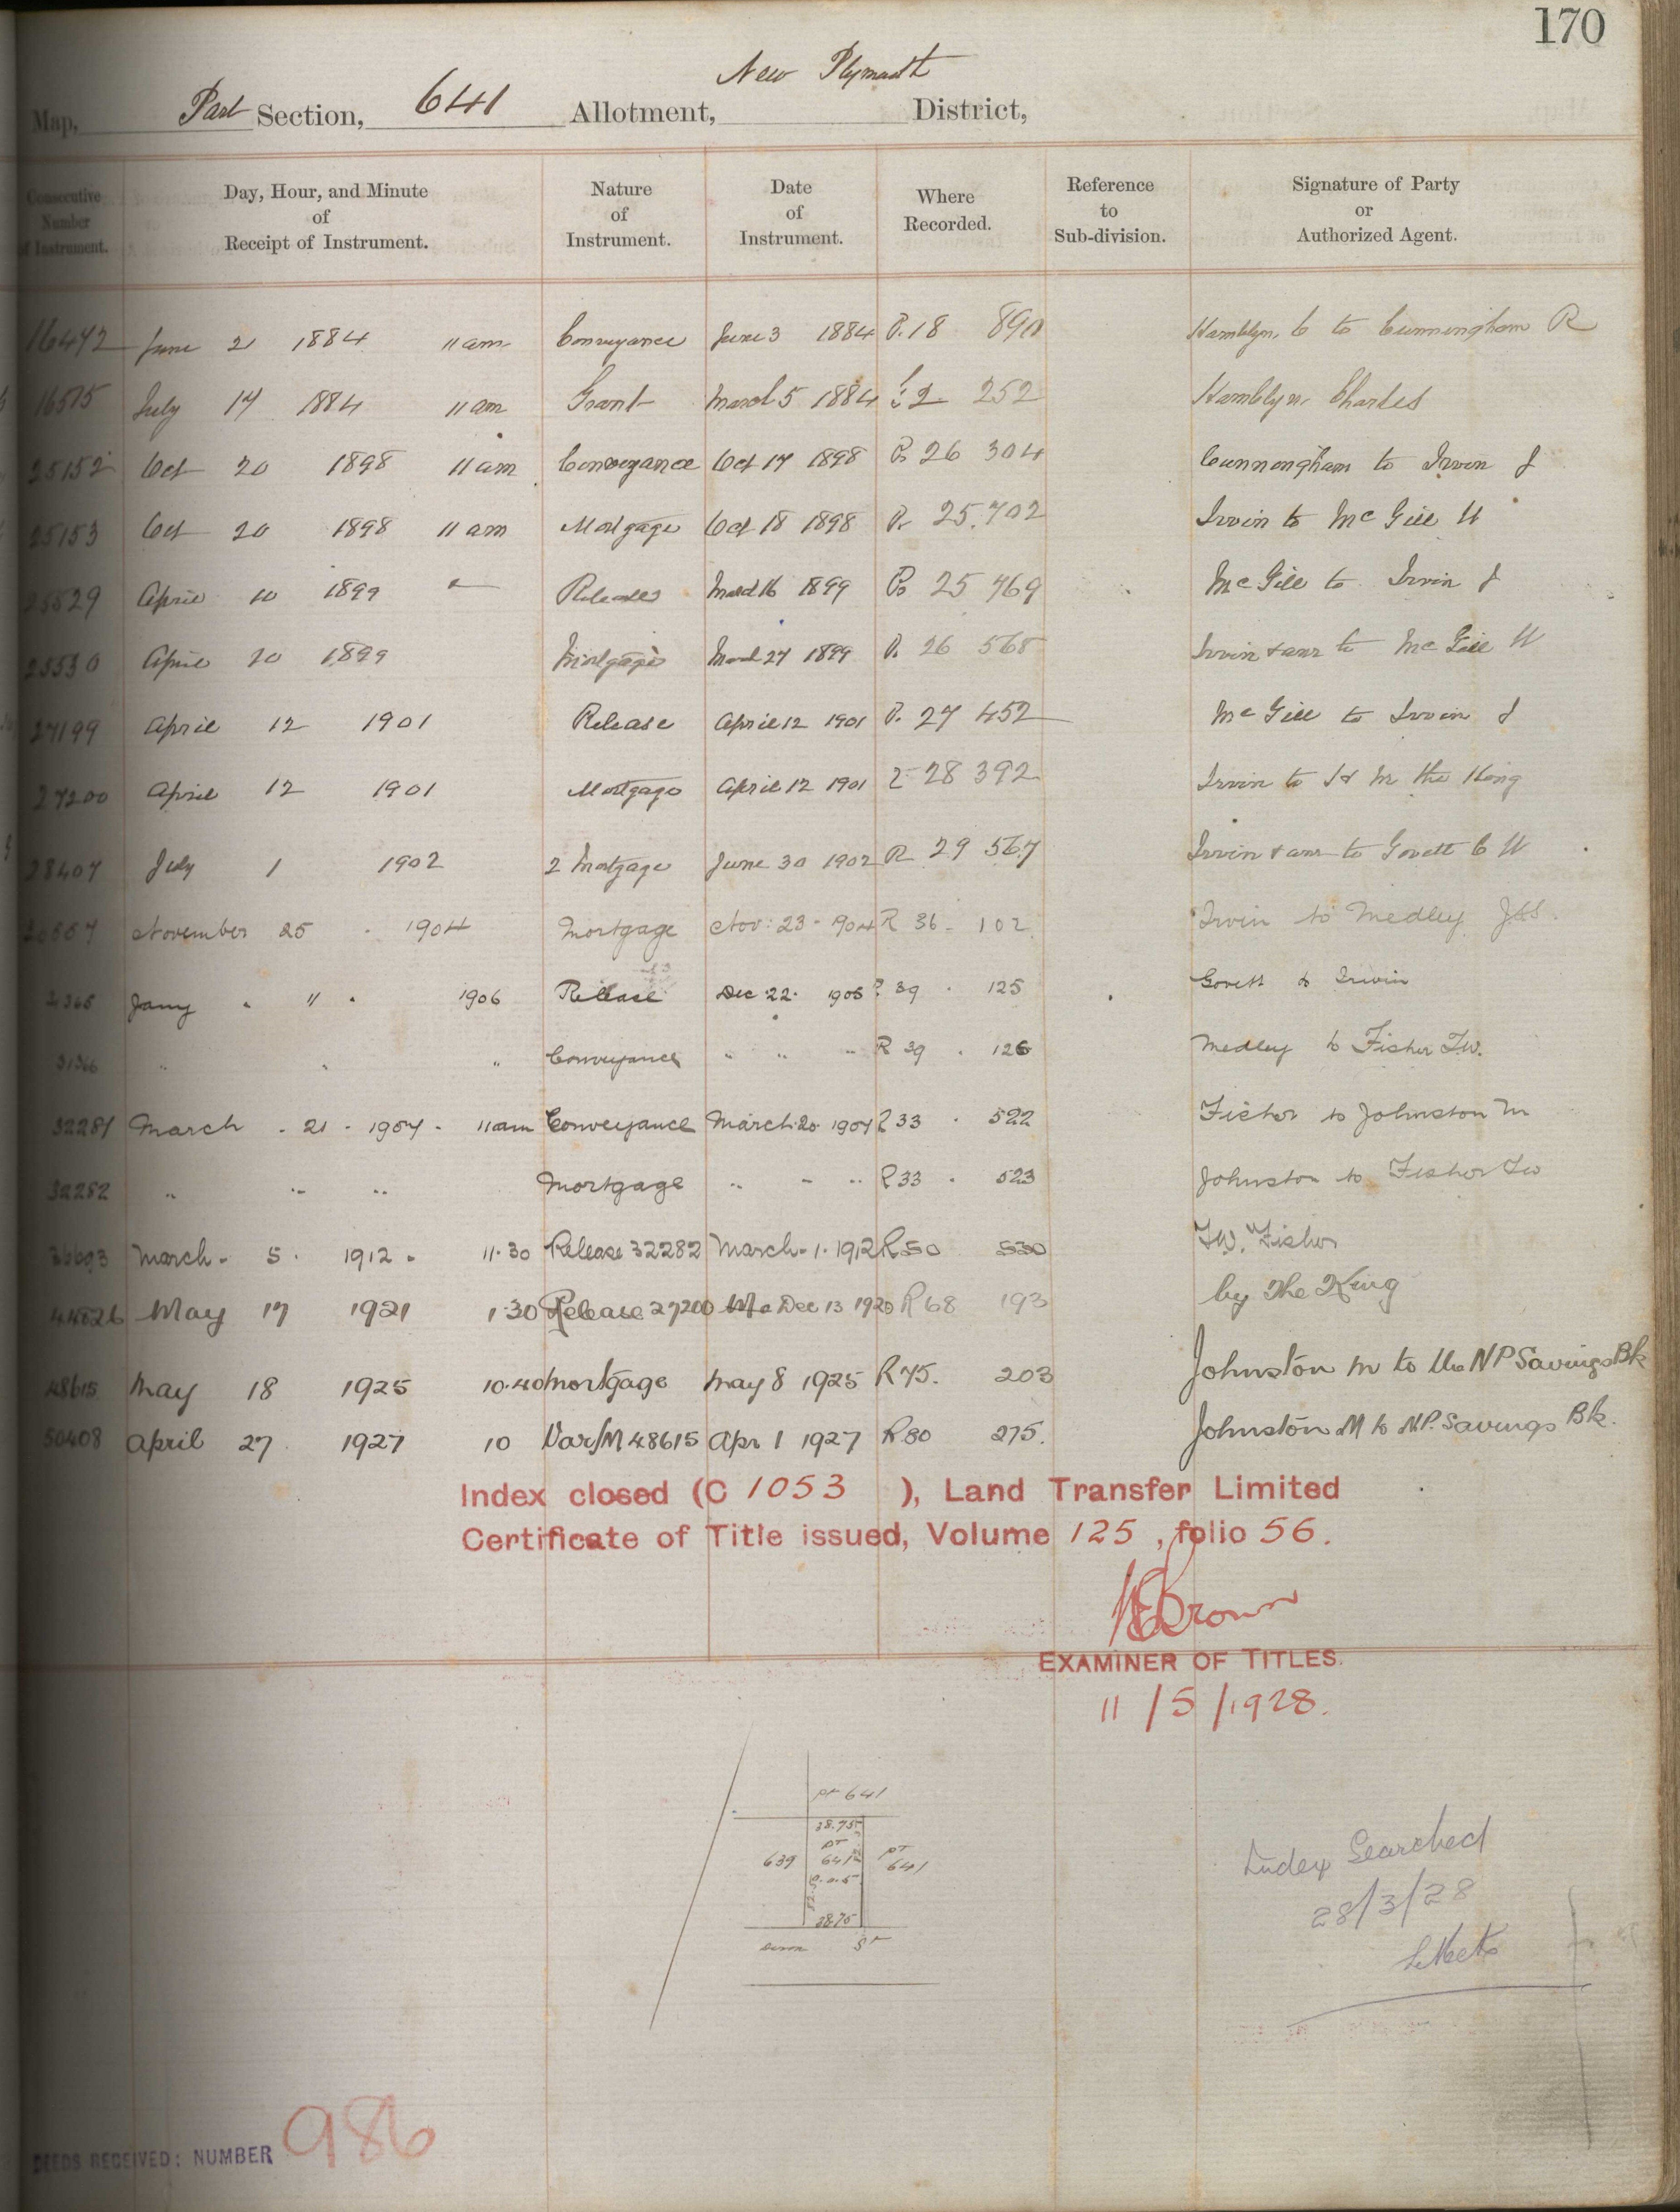 170
New Plymouth
Map, Part Section, 641 Allotment, District,
Consecutive Number of Instrument. Day, Hour, and Minute of Receipt of Instrument. Nature of Instrument. Date of Instrument. Where Recorded. Reference to Sub-division. Signature of Party or Authorized Agent.
16472 June 21 1884 11 am Conveyance June 3 1884 R. 18 890 Hamblyn, C to Cunningham R
16575 July 17 1884 11 am Grant March 5 1884 2 252 Hamblyn Charles
25152 Oct 20 1898 11 am Conveyance Oct 17 1898 R 26 304 Cunningham to Irvin J
25153 Oct 20 1898 11 am Mortgage Oct 18 1898 R. 25.702 Irvin to McGill W
25529 April 10 1899 Release March 16 1899 R 25 769 McGill to Irvin J
25530 April 10 1899 Mortgage March 27 1899 R. 26 568 Irvin & anr to McGill W
27199 April 12 1901 Release April 12 1901 R. 27 452 McGill to Irvin J
27200 April 12 1901 Mortgage April 12 1901 R 28 392 Irvin to H M the King
28407 July 1 1902 2 Mortgage June 30 1902 R 29 567 Irvin & anr to Govett C W
November 25 1904 Mortgage Nov: 23 - 1904 R 36 - 102 Irvin to Medley
31365 Jany " 11 . 1906 Release Dec 22. 1905 R 39 . 125 Govett to Irvin
31366 " " " Conveyance " " " R 39 . 126 Medley to Fisher F.W.
32281 March . 21 . 1907 . 11am Conveyance March 20 1907 R 33 . 522 Fisher to Johnston M
32282 " " " Mortgage " " " R 33 . 523 Johnston to Fisher F W
March - 5 . 1912 . 11.30 Release 32282 March - 1 . 1912 R 50 530 F.W. Fisher
44826 May 17 1921 1.30 Release 27200 Dec 13 1920 R 68 193 by The King
48615 May 18 1925 10.40 Mortgage May 8 1925 R 75. 203 Johnston M to the NP Savings Bk
50408 April 27 1927 10 Var/M 48615 Apr 1 1927 R 80 275. Johnston M to N.P. Savings Bk.
Index closed (C 1053 ), Land Transfer Limited
Certificate of Title issued, Volume 125, folio 56.
Brown
EXAMINER OF TITLES.
11/5/1928.
pt 641
38.75
639 pt 641 pt 641
38.75
St
Index Searched
28/3/28
DEEDS RECEIVED: NUMBER 986